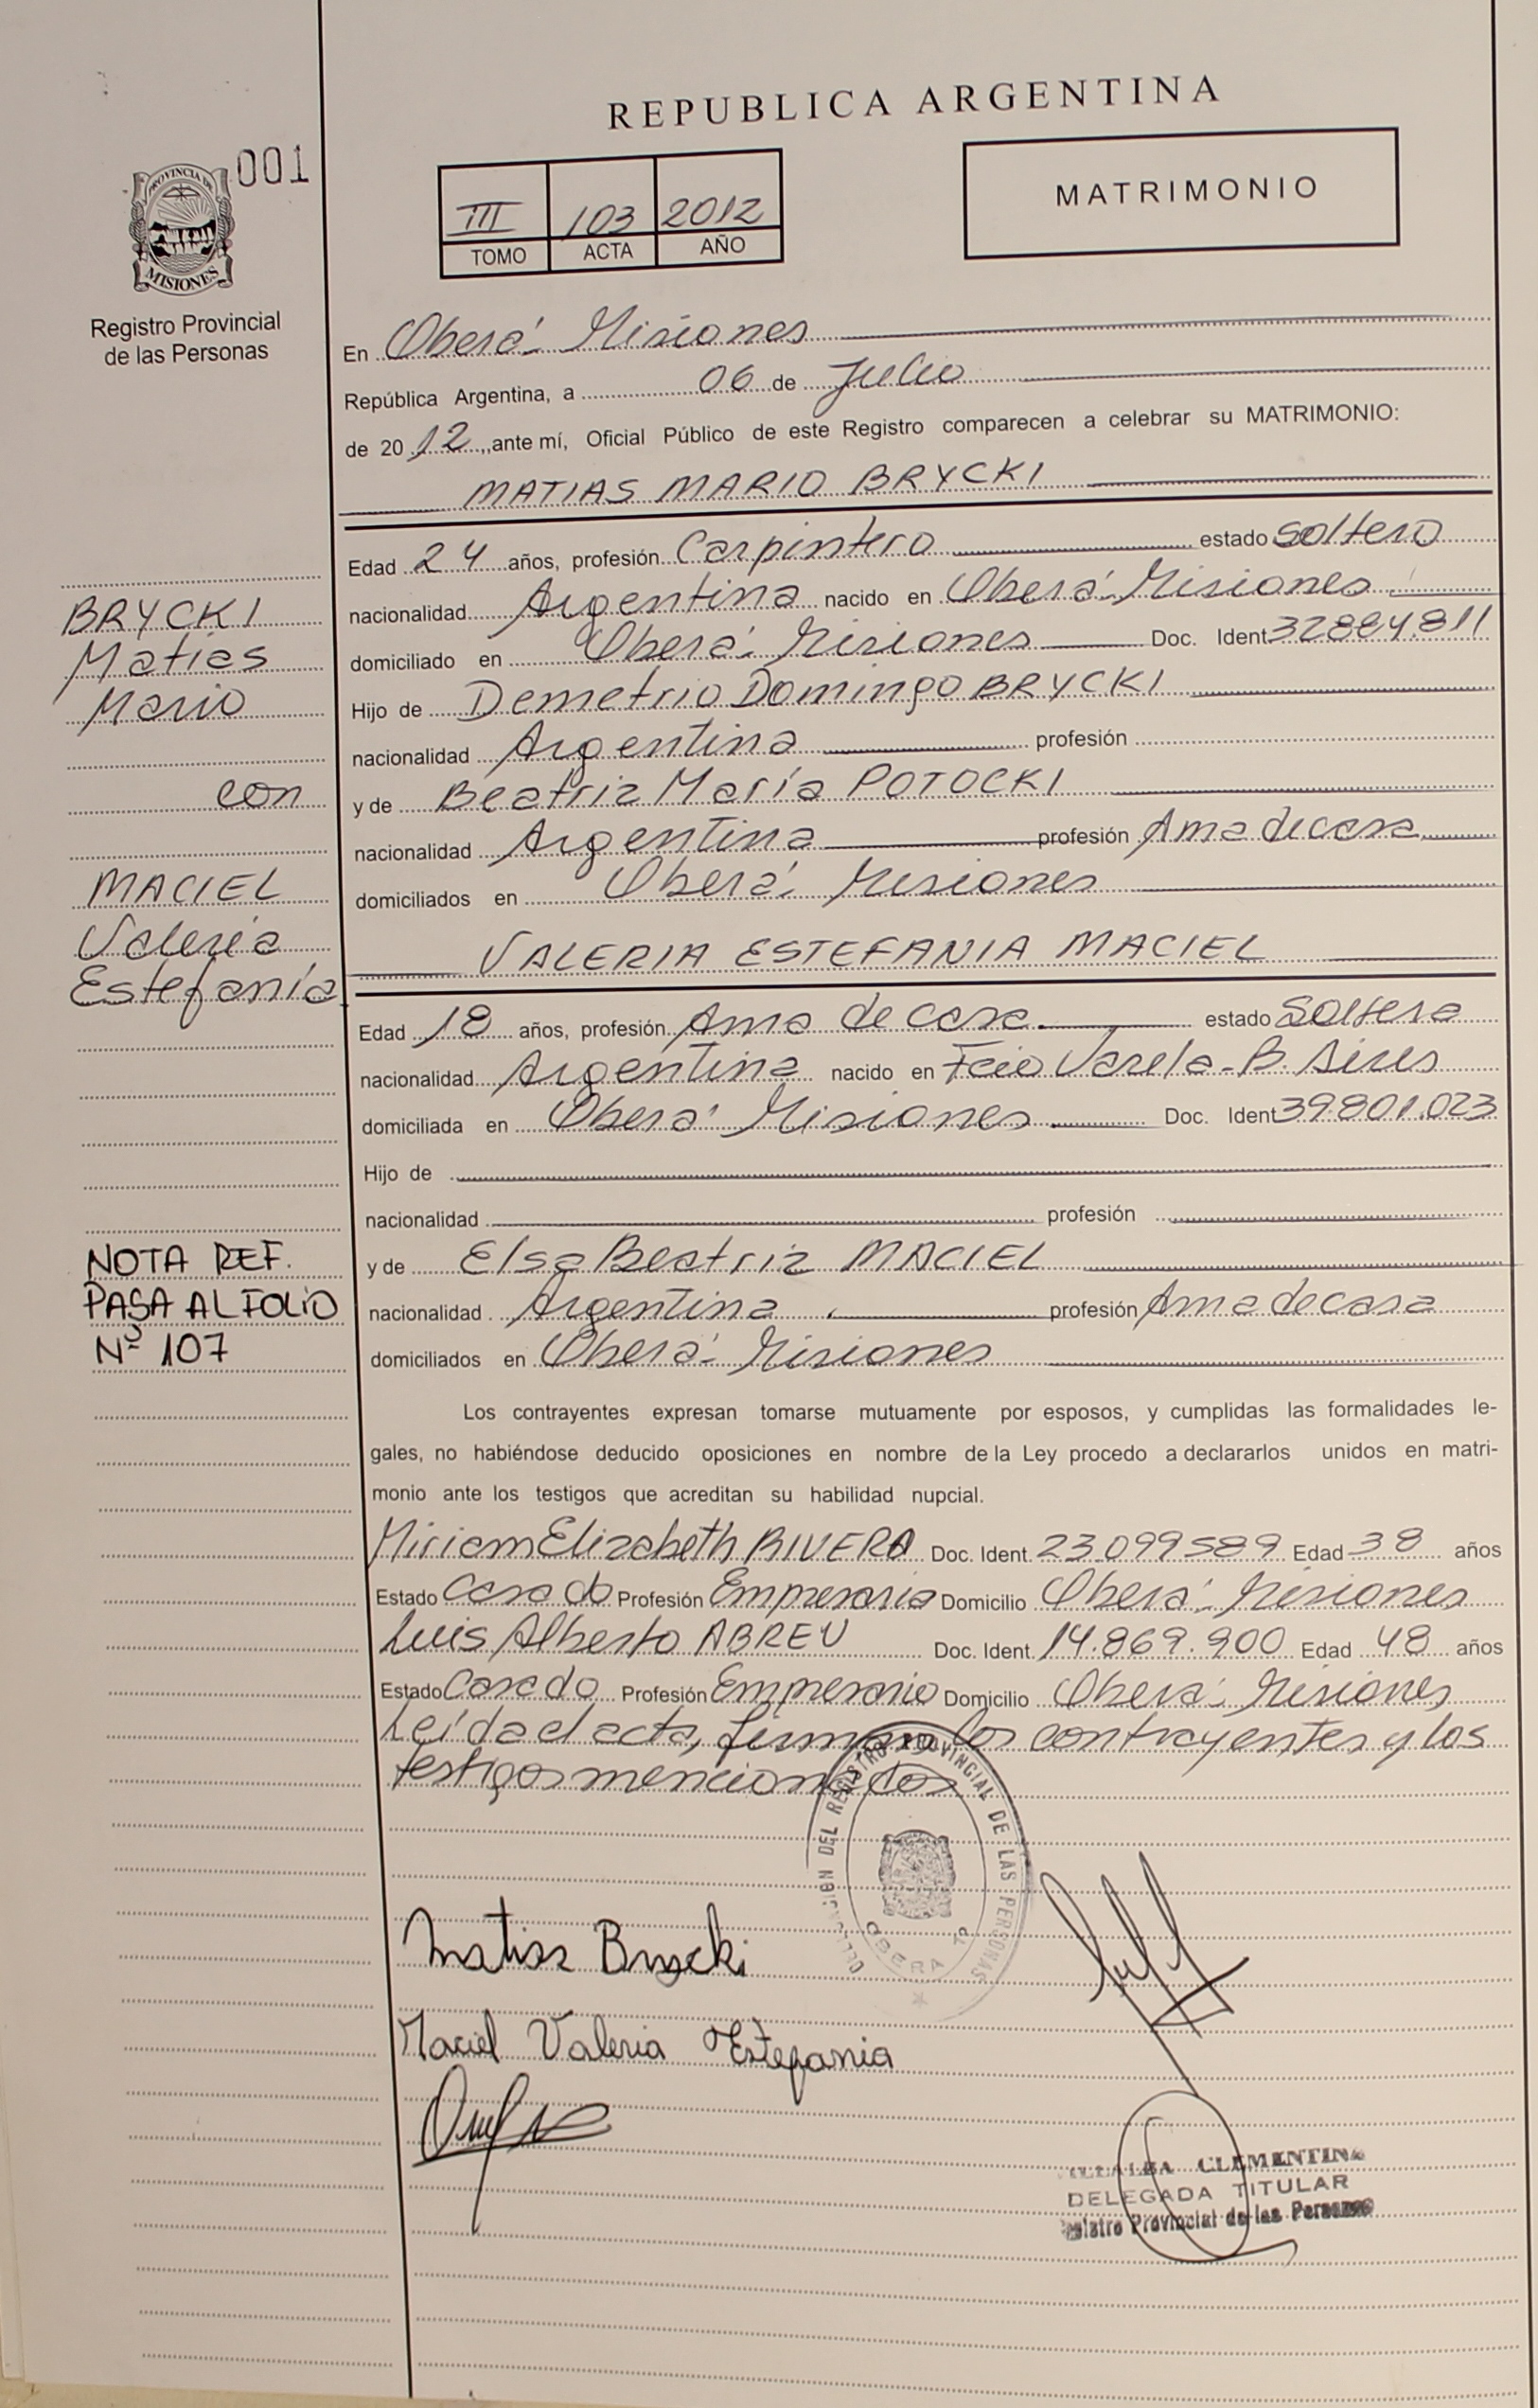 REPUBLICA ARGENTINA
001
PROVINCIA DE
MISIONES
Registro Provincial
de las Personas
III 103 2012
TOMO ACTA AÑO
MATRIMONIO
En Oberá - Misiones
República Argentina, a 06 de Julio
de 2012, ante mí, Oficial Público de este Registro comparecen a celebrar su MATRIMONIO:
MATIAS MARIO BRYCKI
Edad 24 años, profesión Carpintero estado soltero
nacionalidad Argentina nacido en Oberá - Misiones
domiciliado en Oberá - Misiones Doc. Ident 32884.811
Hijo de Demetrio Domingo BRYCKI
nacionalidad Argentina profesión
y de Beatriz María POTOCKI
nacionalidad Argentina profesión Ama de casa
domiciliados en Oberá - Misiones
VALERIA ESTEFANIA MACIEL
Edad 18 años, profesión Ama de casa estado Soltera
nacionalidad Argentina nacido en Fcio Varela - B. Aires
domiciliada en Oberá - Misiones Doc. Ident 39.801.023
Hijo de
nacionalidad profesión
y de Elsa Beatriz MACIEL
nacionalidad Argentina profesión Ama de casa
domiciliados en Oberá - Misiones
Los contrayentes expresan tomarse mutuamente por esposos, y cumplidas las formalidades le-
gales, no habiéndose deducido oposiciones en nombre de la Ley procedo a declararlos unidos en matri-
monio ante los testigos que acreditan su habilidad nupcial.
Miriam Elizabeth RIVERO Doc. Ident. 23.099589 Edad 38 años
Estado Casado Profesión Empresaria Domicilio Oberá - Misiones
Luis Alberto ABREU Doc. Ident. 14.869.900 Edad 48 años
Estado Casado Profesión Empresario Domicilio Oberá - Misiones
Leída el acta, firman los contrayentes y los
testigos mencionados
BRYCKI
Matias
Mario
con
MACIEL
Valeria
Estefanía
NOTA REF.
PASA AL FOLIO
Nº 107
DELEGACION DEL REGISTRO PROVINCIAL DE LAS PERSONAS
OBERA
Matias Brycki
Maciel Valeria Estefania
CLEMENTINA
DELEGADA TITULAR
Registro Provincial de las Personas